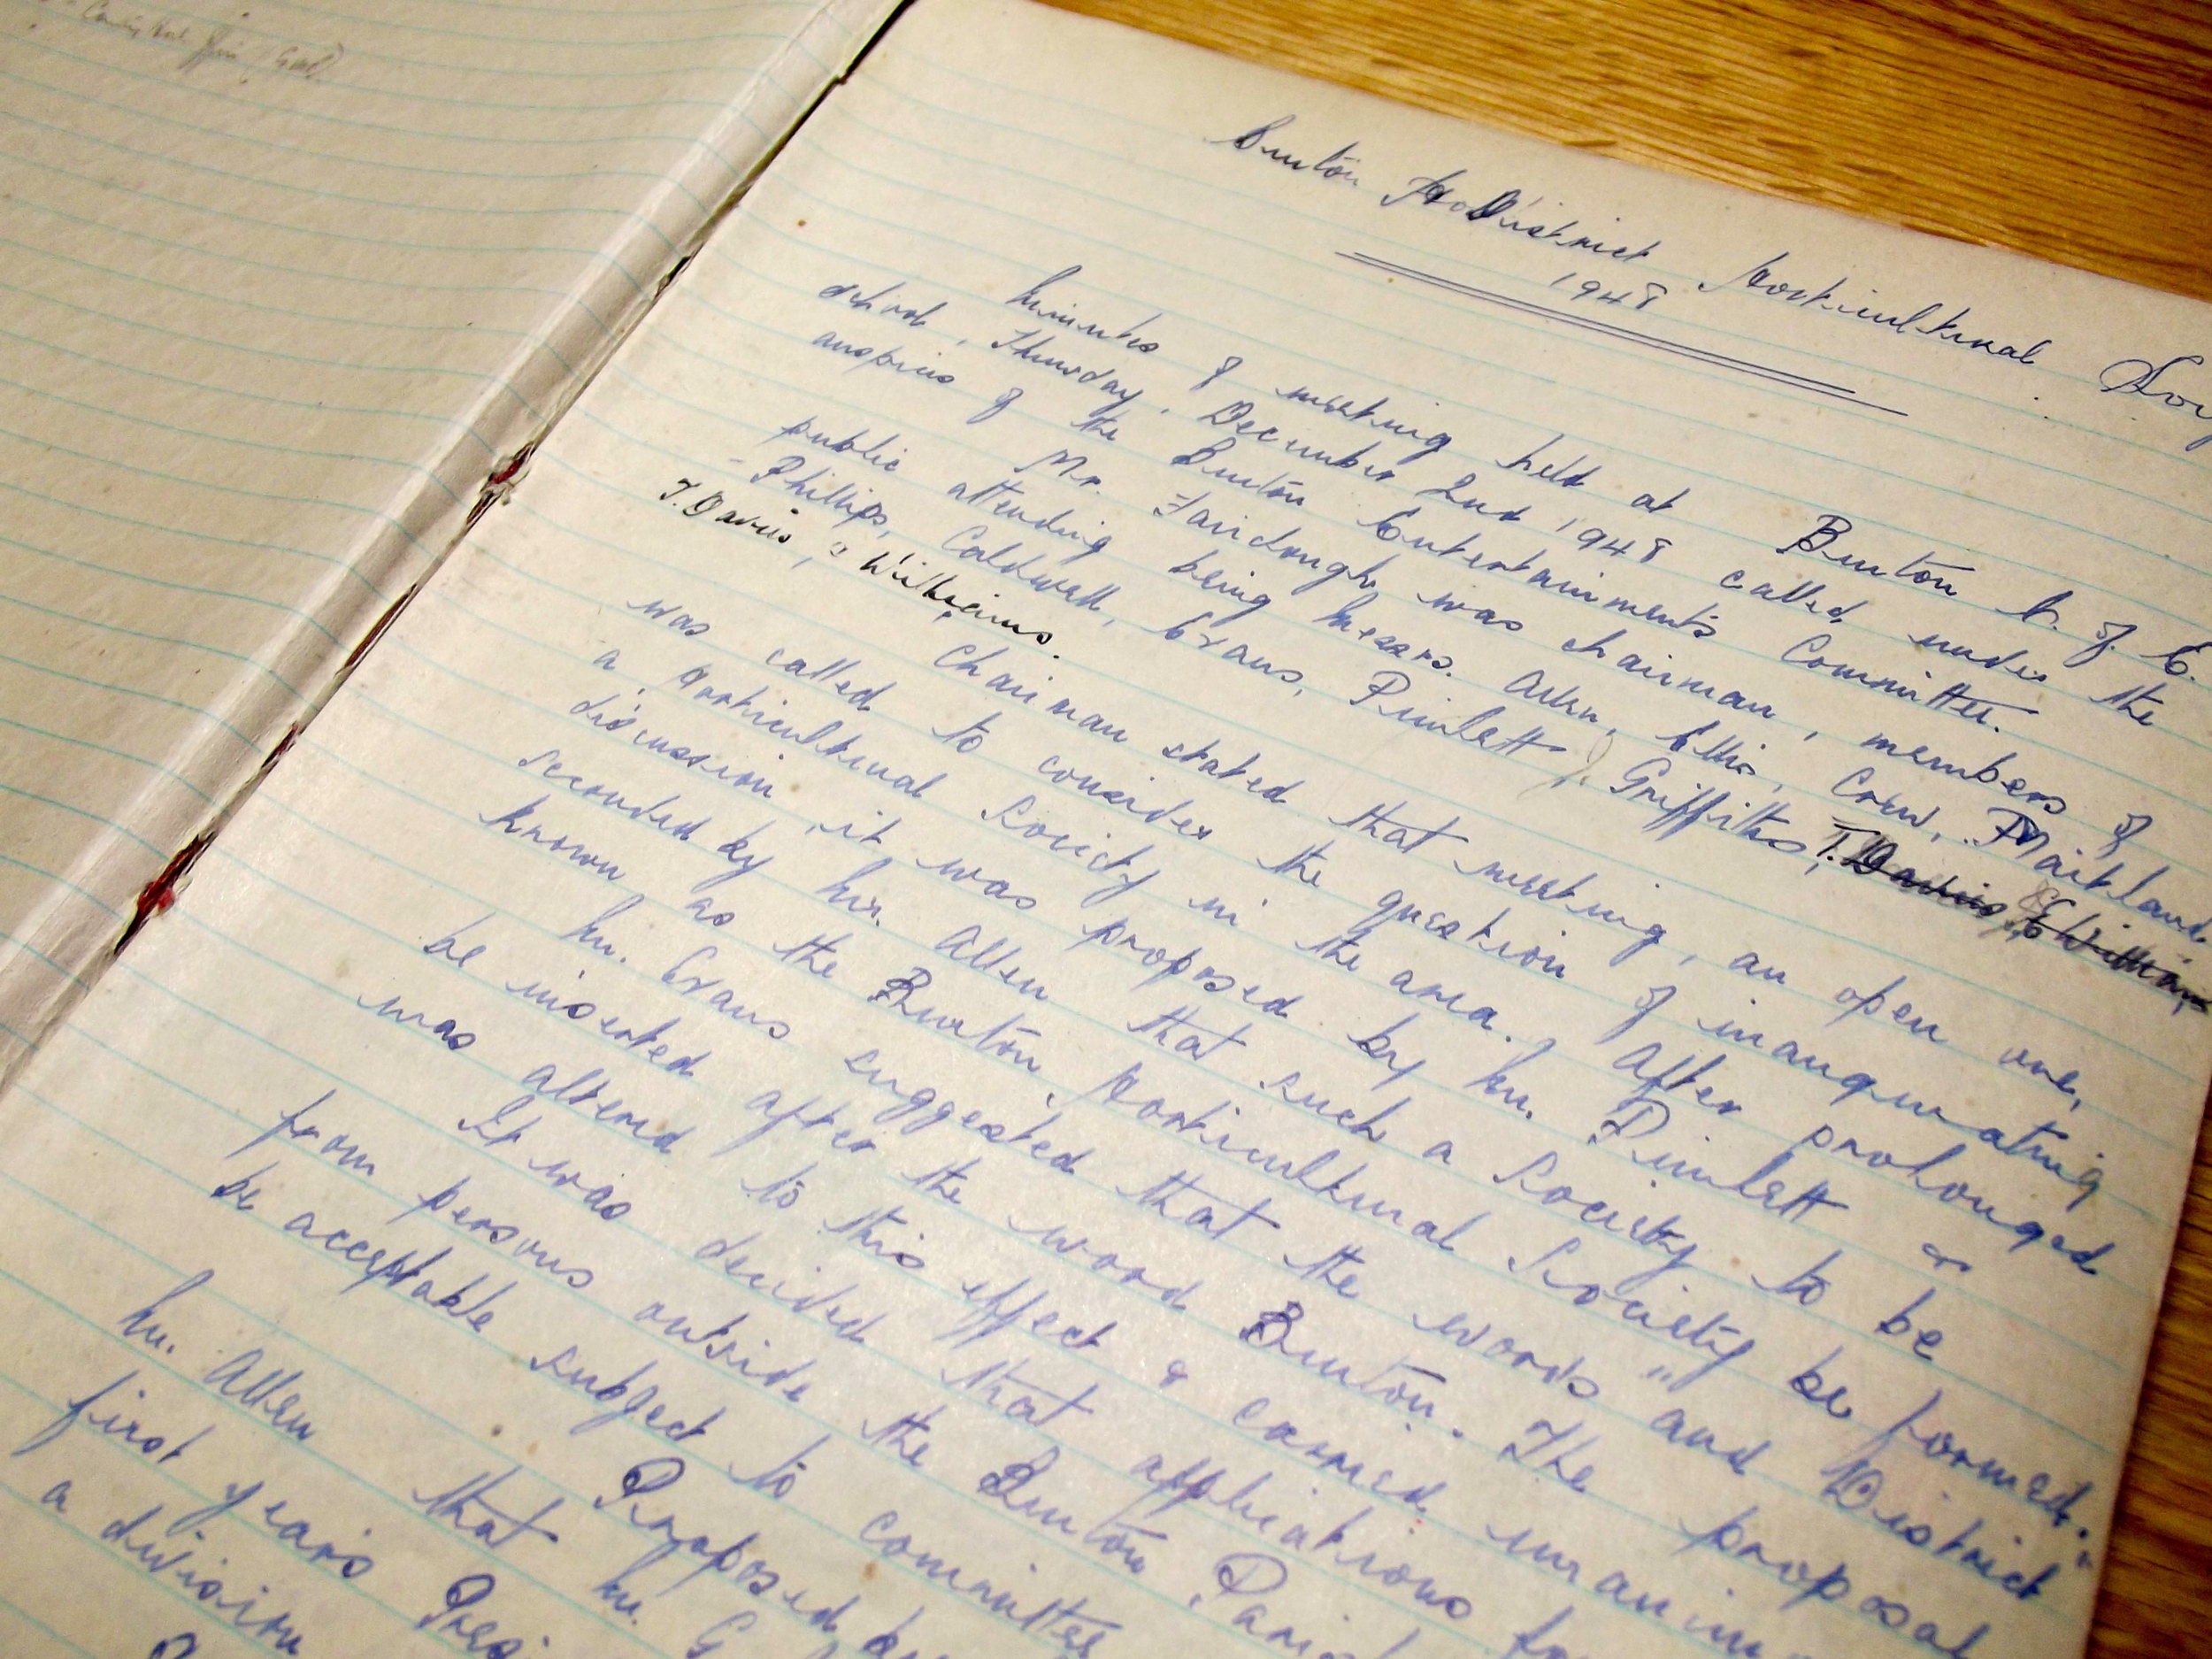 Burton & District Horticultural
1948
Minutes of meeting held at Burton C. of E.
school, Thursday, December 2nd 1948 called under the
auspices of the Burton Entertainments Committee.
Mr. Fairclough was chairman, members of
public attending being Messrs. Allen, Ellis, Crew, Maitland
Phillips, Caldwell, Evans, Pimlett, J. Griffiths, T. Davies, E Williams
T. Davies, Williams.
Chairman stated that meeting, an open one,
was called to consider the question of inaugurating
a Horticultural Society in the area. After prolonged
discussion it was proposed by Mr. Pimlett &
seconded by Mr. Allen that such a Society to be
known as the Burton Horticultural Society be formed.
Mr. Evans suggested that the words "and District"
be inserted after the word Burton. The proposal
was altered to this effect & carried
It was decided that applications
from persons outside the Burton
be acceptable subject to committee
Proposed
Mr. Allen that Mr. G
first year's
a division